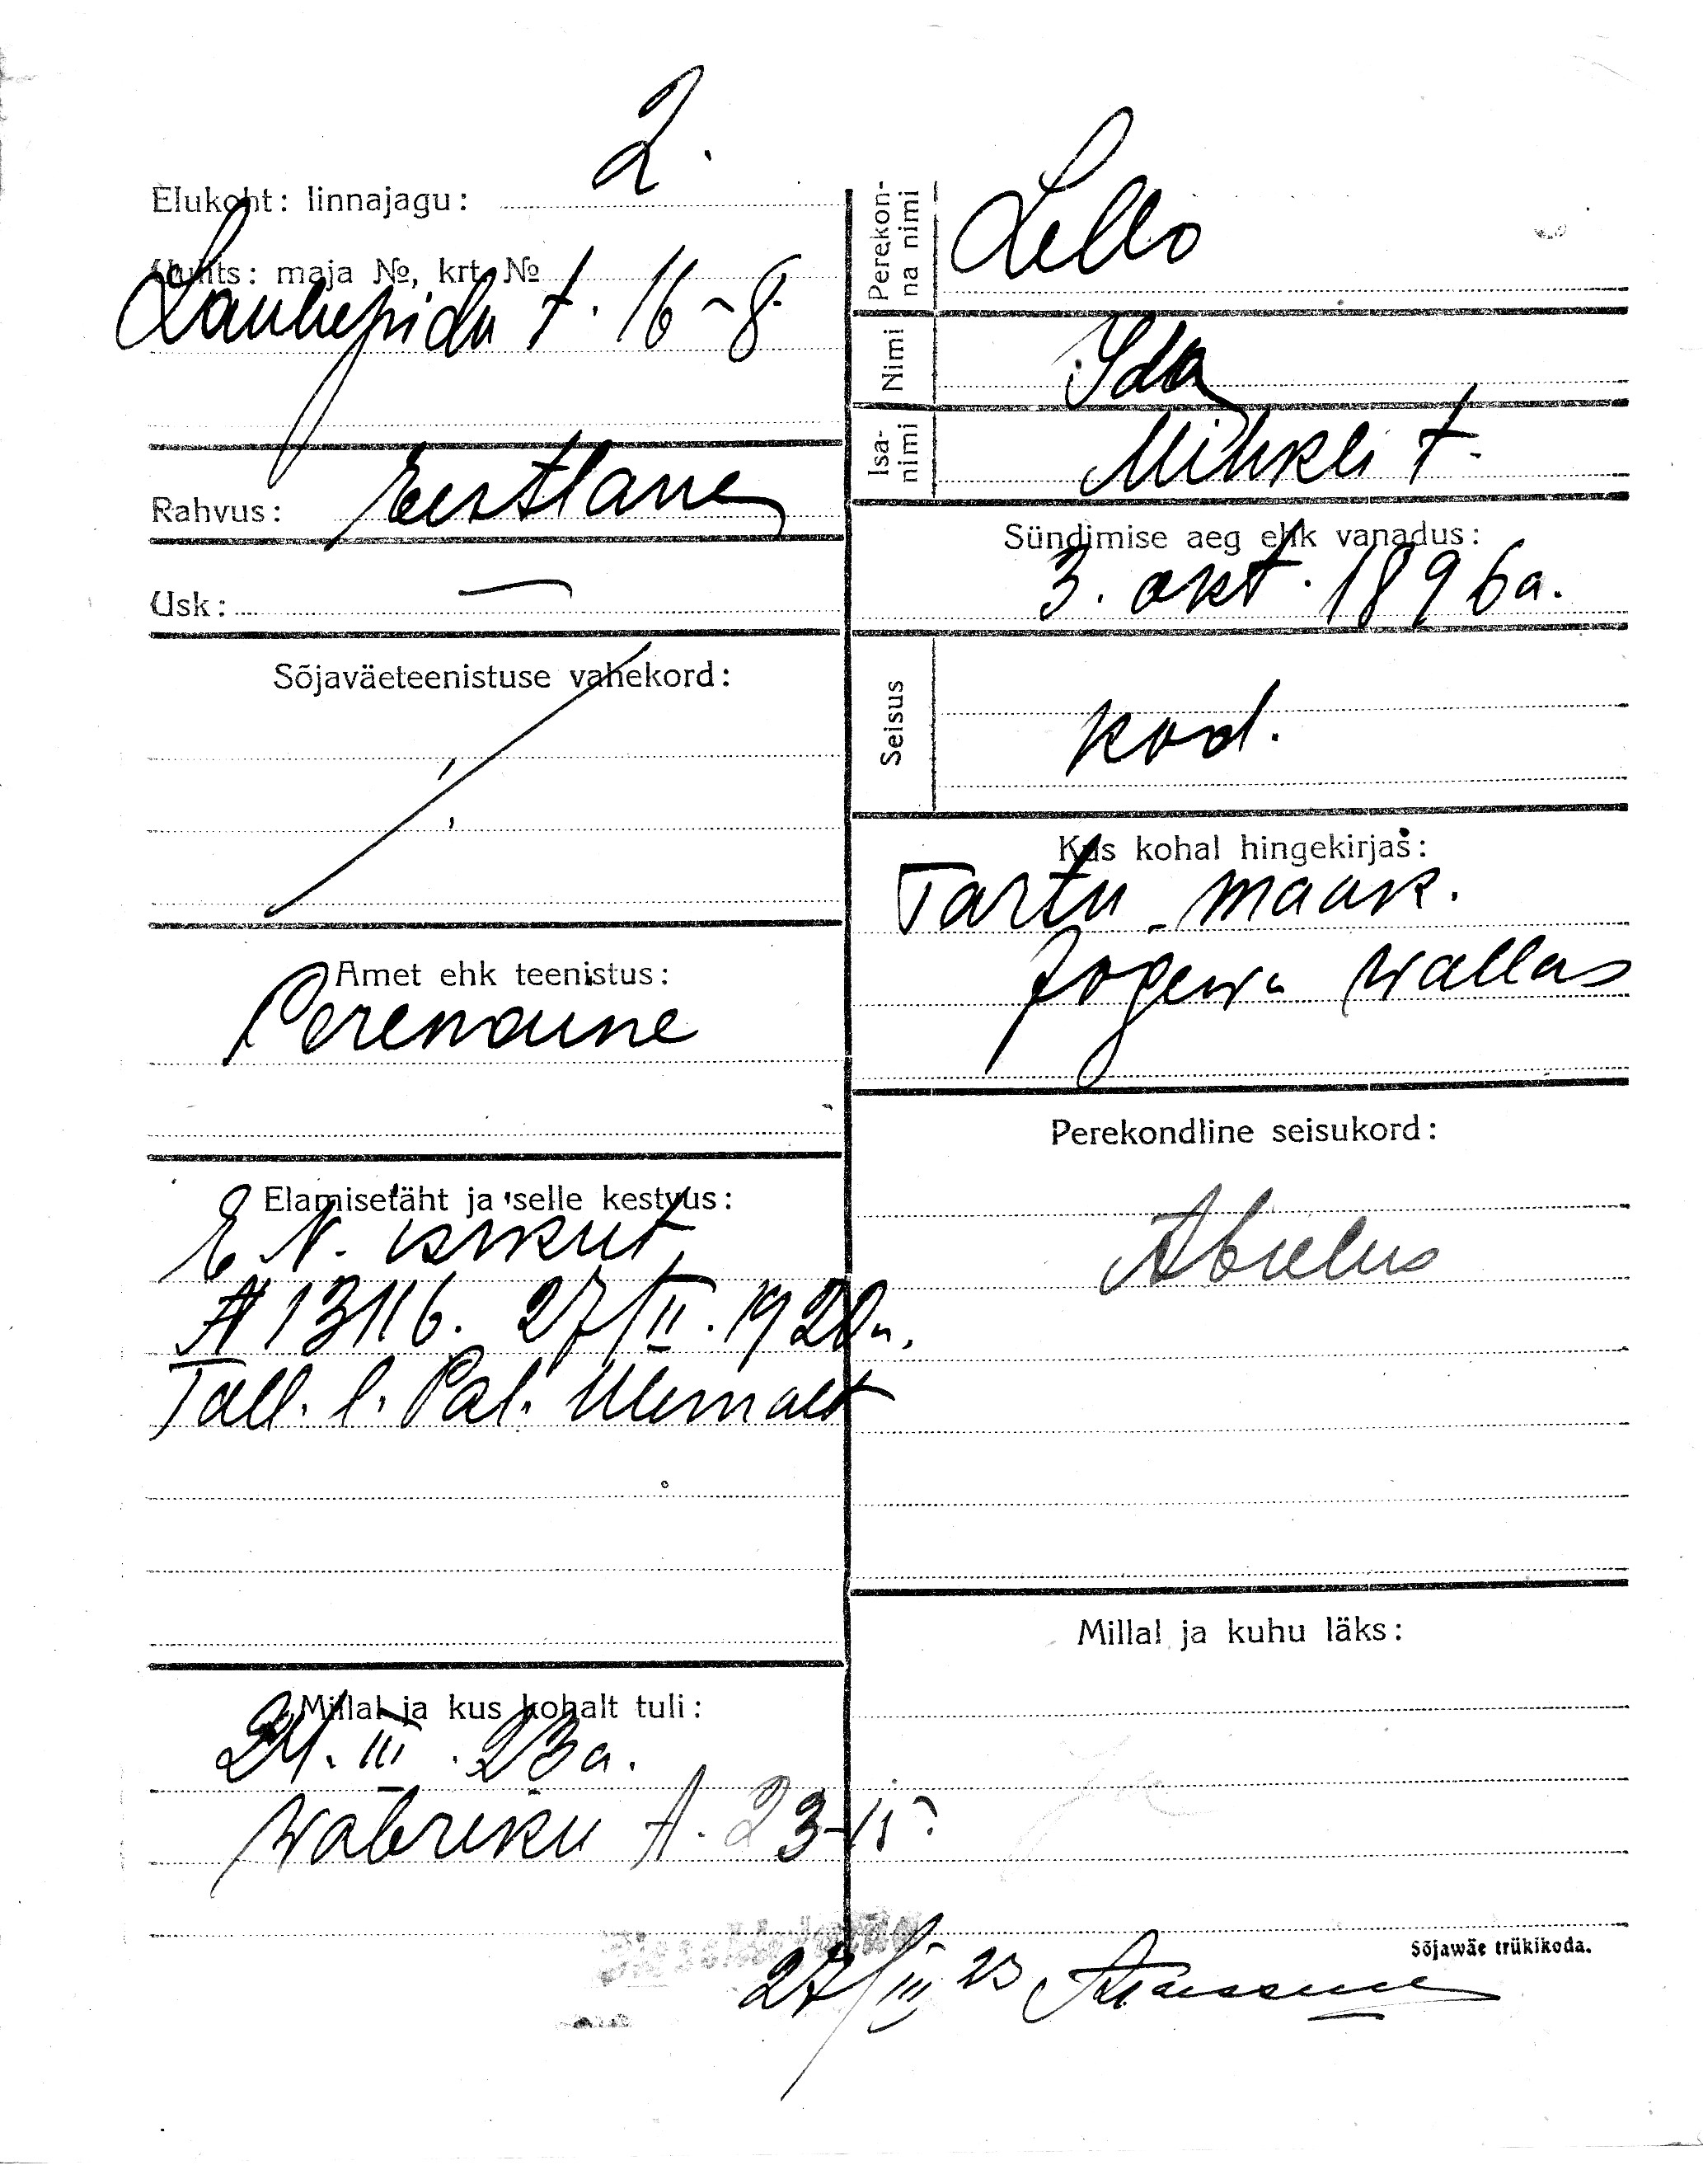 2.
Elukoht: linnajagu:
Uulits: maja №, krt. №
Laulupidu t. 16-8.
Rahvus: Eestlane
Usk: —
Sõjaväeteenistuse vahekord:
Amet ehk teenistus:
Perenaine
Elamisetäht ja selle kestvus:
E V. isikut.
№ 13116. 27/II. 1920a.
Tall. l. Pol. Ülemalt
Millal ja kus kohalt tuli:
24. III. 23 a.
Wabriku t. 23-15
Perekonna nimi
Lello
Nimi
Ida
Isanimi
Mihkli t.
Sündimise aeg ehk vanadus:
3. okt. 1896 a.
Seisus
kod.
Kus kohal hingekirjas:
Tartu maak.
Jõgewa wallas
Perekondline seisukord:
Abielus
Millal ja kuhu läks:
Sõjawäe trükikoda.
27/III 23